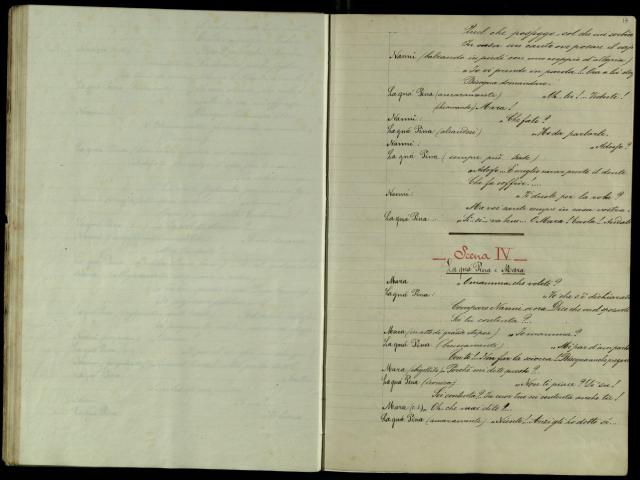 Quel che posseggo.. sol da mi serbia
In casa un canto ove posare il cap
Nanni (balzando in piedi con uno scoppio d'allegria)
Io vi prendo in parola! Ora a lei
Bisogna domandare.
La gnà Pina (amaramente) Ah, lei!... Vedrete!
(chiamando) Mara!
Nanni: Che fate?
La gnà Pina (alzandosi) Ho da parlarle.
Nanni: Adesso?
La gnà Pina (sempre più triste)
Adesso... È meglio cavar presto il dente
Che fa soffrire!....
Nanni: Ti duole per la roba?
Ma voi avrete sempre in casa vostra
La gnà Pina.. Sì.. sì.. va bene... O Mara!
Scena IV
La gnà Pina e Mara
Mara O mamma, che volete?
La gnà Pina: Te che s'è dichiarato
Compare Nanni or ora. Dice che vuol sposarti
Sei tu contenta?...
Mara (in atto di grande stupor) Io mamma?
La gnà Pina (bruscamente) Mi par d'aver parlato
Con te! Non far la sciocca!
Mara (sbigottita) Perchè mi dite questo?
La gnà Pina (ironica) Non ti piace?
Sei contenta? In cuor tuo sei contenta anche tu!
Mara (c.s.) Oh che mai dite?...
La gnà Pina (amaramente) Niente! Anzi gli ho detto sì...